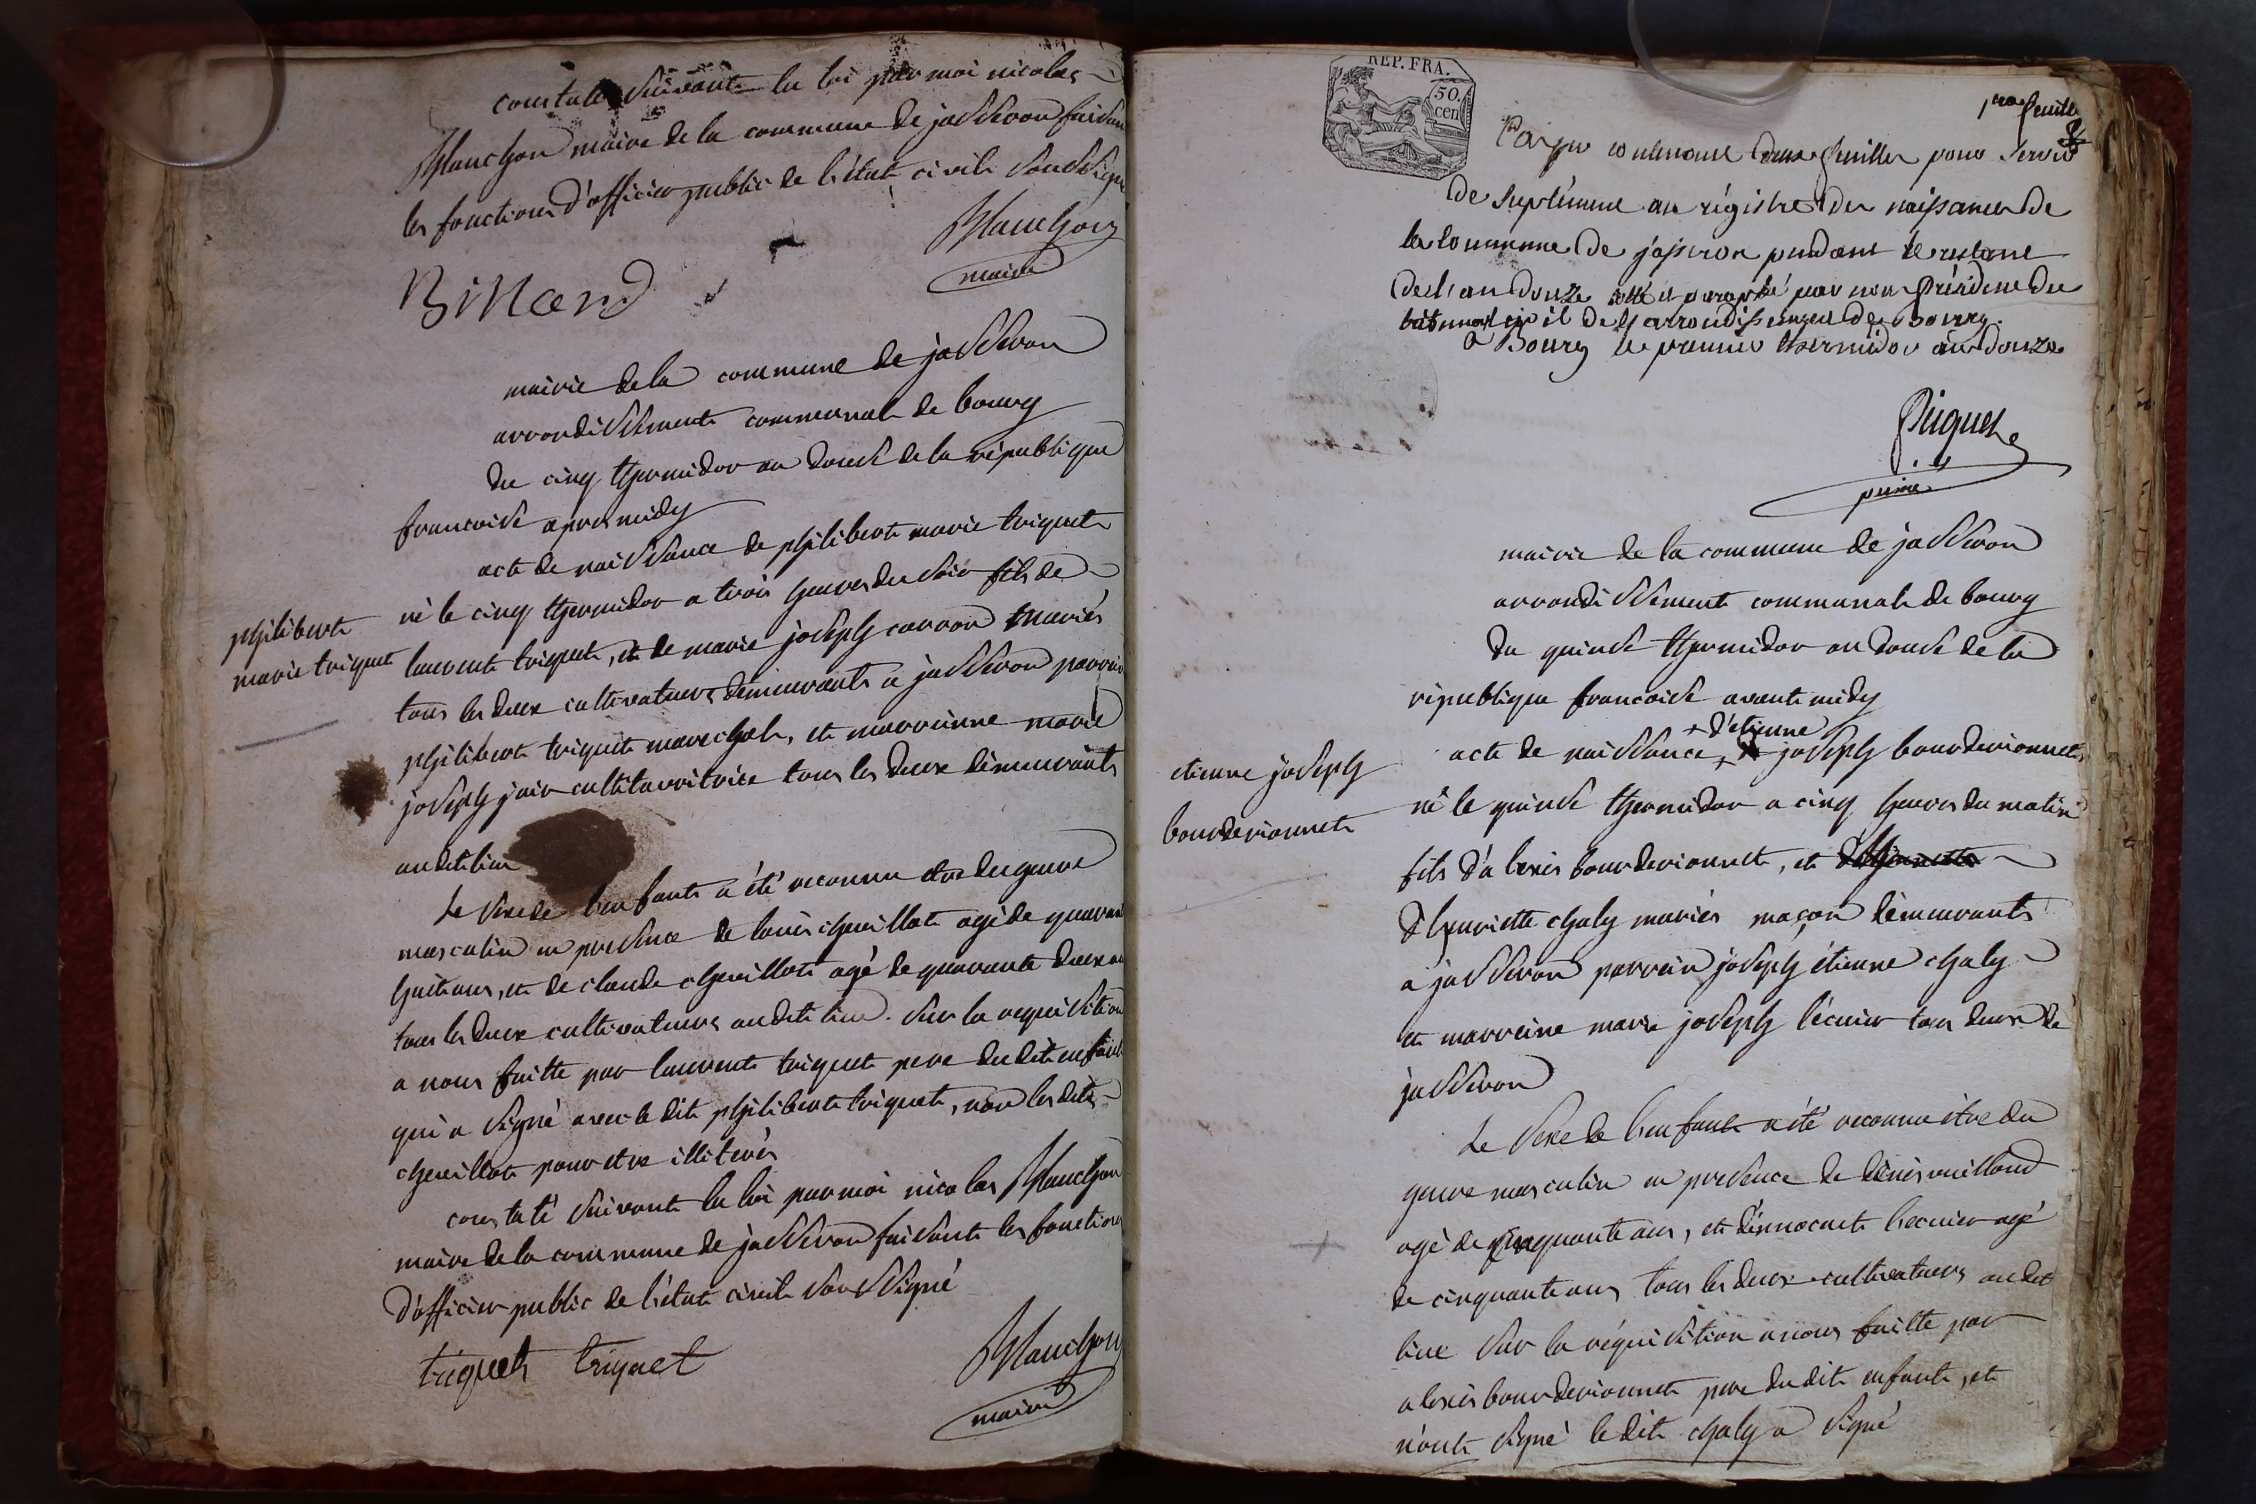 constaté suivant la loi par moi nicolas
Blanchon maire de la commune de jasseron faisant
les fonctions d'officier public de l'état civile soussigné
Blanchon
maire
Billand
mairie de la commune de jasseron
arrondissement communale de bourg
du cinq thermidor an douse de la république
francoise apres midy
acte de naissance de philibert marie triquet
né le cinq thermidor a trois heures du soir fils de
philibert
marie triquet
laurent triquet, et de marie joseph carron mariés
tous les deux cultivateurs demeurants a jasseron parrain
philibert triquet marechal, et marreinne marie
joseph jair cultitavritrice tous les deux demeurants
audit lieu
Le sexe de l'enfant a été reconnu etre du genre
masculin en presence de louis chevillot agé de quarant
huit ans, et de claude chevillot agé de quarante deux an
tous les deux cultivateurs audit lieu. sur la requisition
a nous faitte par laurent triquet pere dudit enfant
qui a signé avec le dit philibert triquet, non les dits
chevillot pour etre illiterés
constaté suivant la loi par moi nicolas Blanchon
maire de la commune de jasseron faisant les fonctions
d'officier public de l'état civile soussigné
triquet triquet
Blanchon
maire
REP. FRA.
50.
cen
1ere feuille
Papier contenant deux feuilles pour servir
de suplément au régistre des naissances de
la commune de jasseron pendant le restant
de l'an douze cotté et paraphé par nous Président du
tribunal civil de l'arrondissement de Bourg.
a Bourg le premier thermidor an douze
Piquet
mairie de la commune de jasseron
arrondissement communale de bourg
du quinse thermidor an douse de la
république francoise avant midy
+ d'etienne
acte de naissance joseph bourderionnet
etienne joseph
bourderionnet
né le quinse thermidor a cinq heures du matin
fils d'alexis bourderionnet, et
d'henriette chaly mariés maçon demeurants
a jasseron parrain joseph étienne chaly
et marreine marie joseph l'écuier tous deux de
jasseron
Le sexe de l'enfant a été reconnu être du
genre masculin en presence de denis vuilland
agé de cinquante ans, et d'innocent l'ecuier agé
de cinquante ans tous les deux cultivateurs audit
lieu sur la réquisition a nous faitte par
alexis bourderionnet pere du dit enfant, et
n'ont signé le dit chaly a signé